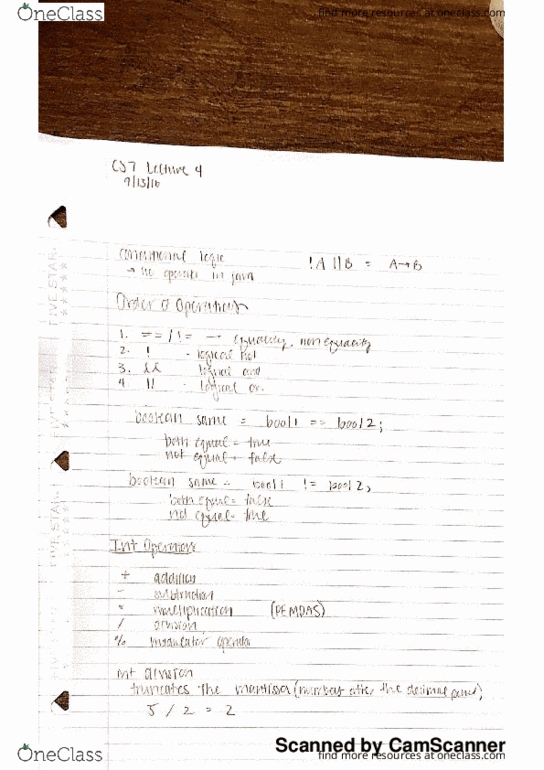 OneClass
find more resources at oneclass.com
CS7 Lecture 4
9/13/16
conditional logic
!A || B = A→B
→ no operator in java
Order of Operations
1. == / != → equality, non equality
2. ! - logical not
3. && logical and
4. || - logical or
boolean same = bool1 == bool2;
both equal = true
not equal = false
boolean same = bool1 != bool2;
both equal = false
not equal = true
Int Operators
+ addition
- subtraction
* multiplication (PEMDAS)
/ division
% operator
int division
truncates the mantissa (numbers after the decimal point)
5 / 2 = 2
Scanned by CamScanner
OneClass
find more resources at oneclass.com
FIVE STAR
FIVE STAR
FIVE STAR